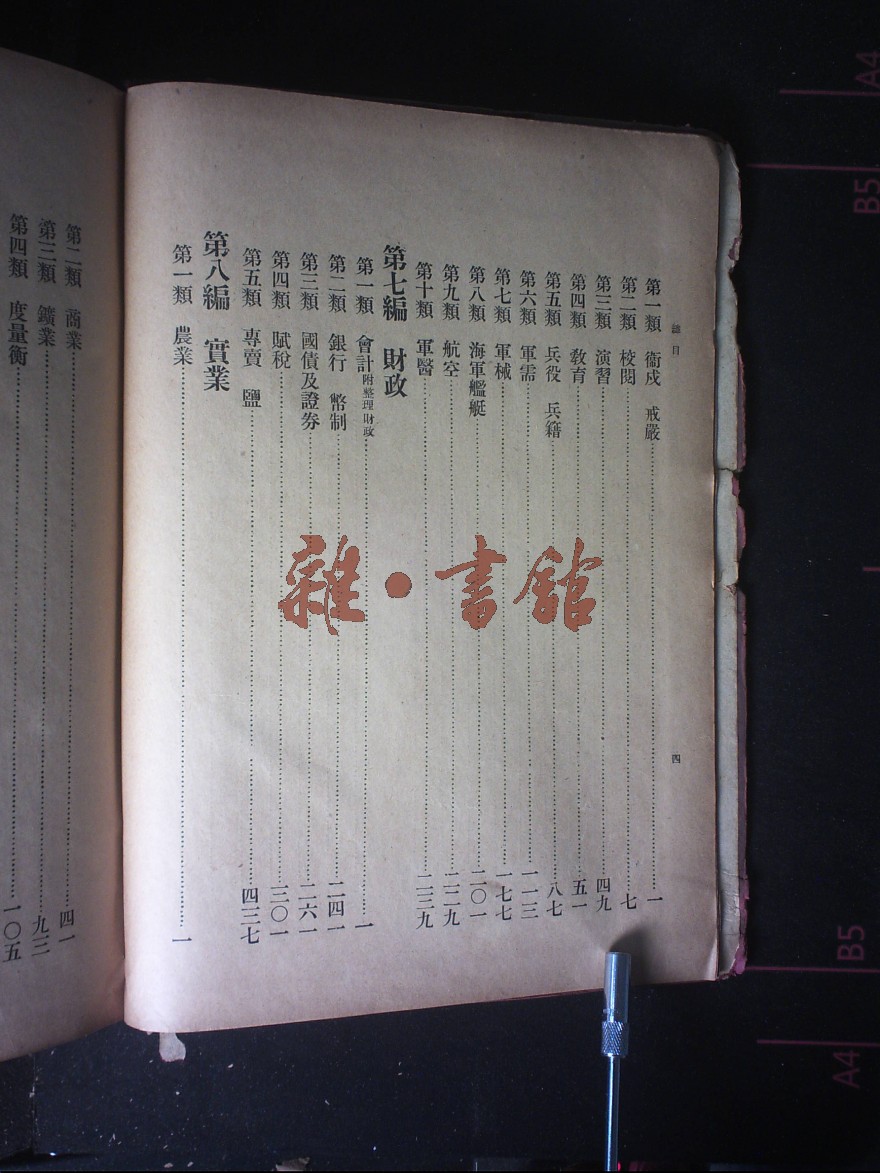 總目
第一類 衞戍 戒嚴 一
第二類 校閱 七
第三類 演習 四九
第四類 敎育 五一
第五類 兵役 兵籍 八七
第六類 軍需 一一三
第七類 軍械 一七七
第八類 海軍艦艇 二〇一
第九類 航空 二二九
第十類 軍醫 二三九
第七編 財政
第一類 會計附整理財政 一
第二類 銀行 幣制 二四一
第三類 國債及證券 二六一
第四類 賦稅 三〇一
第五類 專賣 鹽 四三七
第八編 實業
第一類 農業 一
四
第二類 商業 四一
第三類 鑛業 九三
第四類 度量衡 一〇五
雜·書館
A4
B5
B5
A4